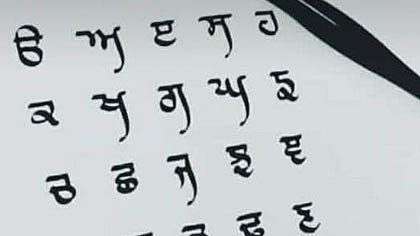 ੳ ਅ ੲ ਸ ਹ
ਕ ਖ ਗ ਘ ਙ
ਚ ਛ ਜ ਝ ਞ
ਢ ਣ